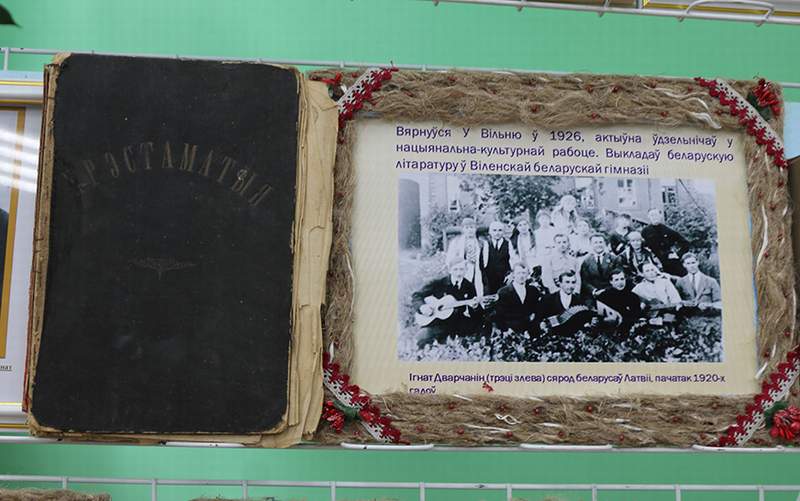 ХРЭСТАМАТЫЯ
Вярнуўся У Вільню ў 1926, актыўна ўдзельнічаў у
нацыянальна-культурнай рабоце. Выкладаў беларускую
літаратуру ў Віленскай беларускай гімназіі
Ігнат Дварчанін (трэці злева) сярод беларусаў Латвіі, пачатак 1920-х
гадоў